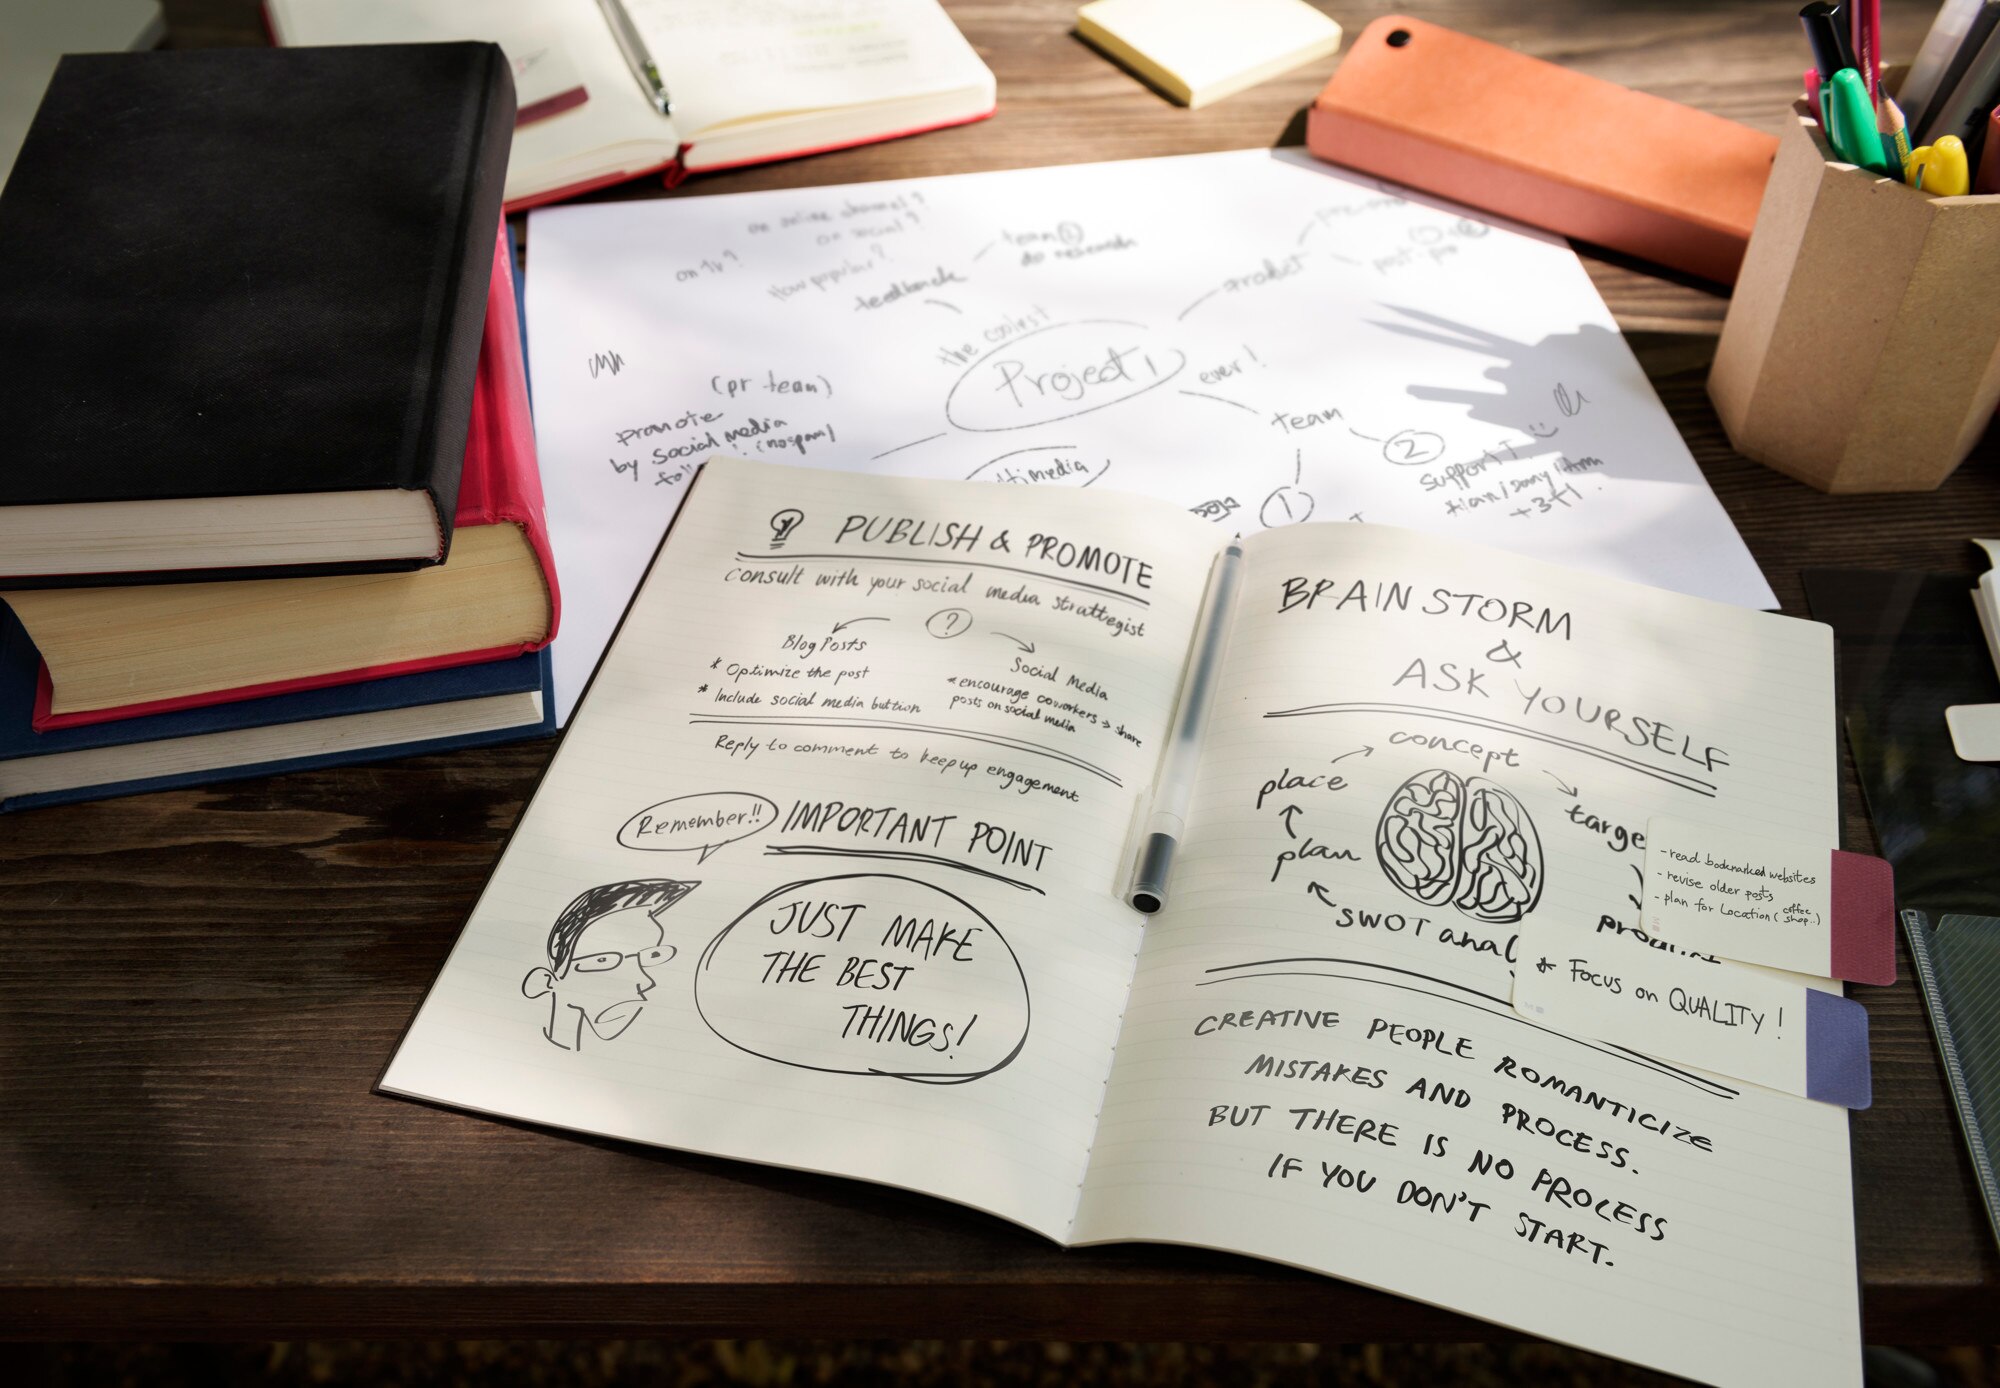 on online channel?
on social?
on tv?
How popular?
feedback
team ①
do research
product
post-pro
the coolest
Project 1
ever!
(pr team)
promote
by social media
(no spam)
team
②
support
①
PUBLISH & PROMOTE
consult with your social media strattegist
?
Blog Posts
* Optimize the post
* Include social media buttion
Social Media
* encourage coworkers → share
posts on social media
Reply to comment to keep up engagement
Remember!!
IMPORTANT POINT
JUST MAKE
THE BEST
THINGS!
BRAINSTORM
&
ASK YOURSELF
concept
place
plan
SWOT
- read bookmarked websites
- revise older posts
- plan for Location (coffee shop..)
* Focus on QUALITY!
CREATIVE PEOPLE ROMANTICIZE
MISTAKES AND PROCESS.
BUT THERE IS NO PROCESS
IF YOU DON'T START.